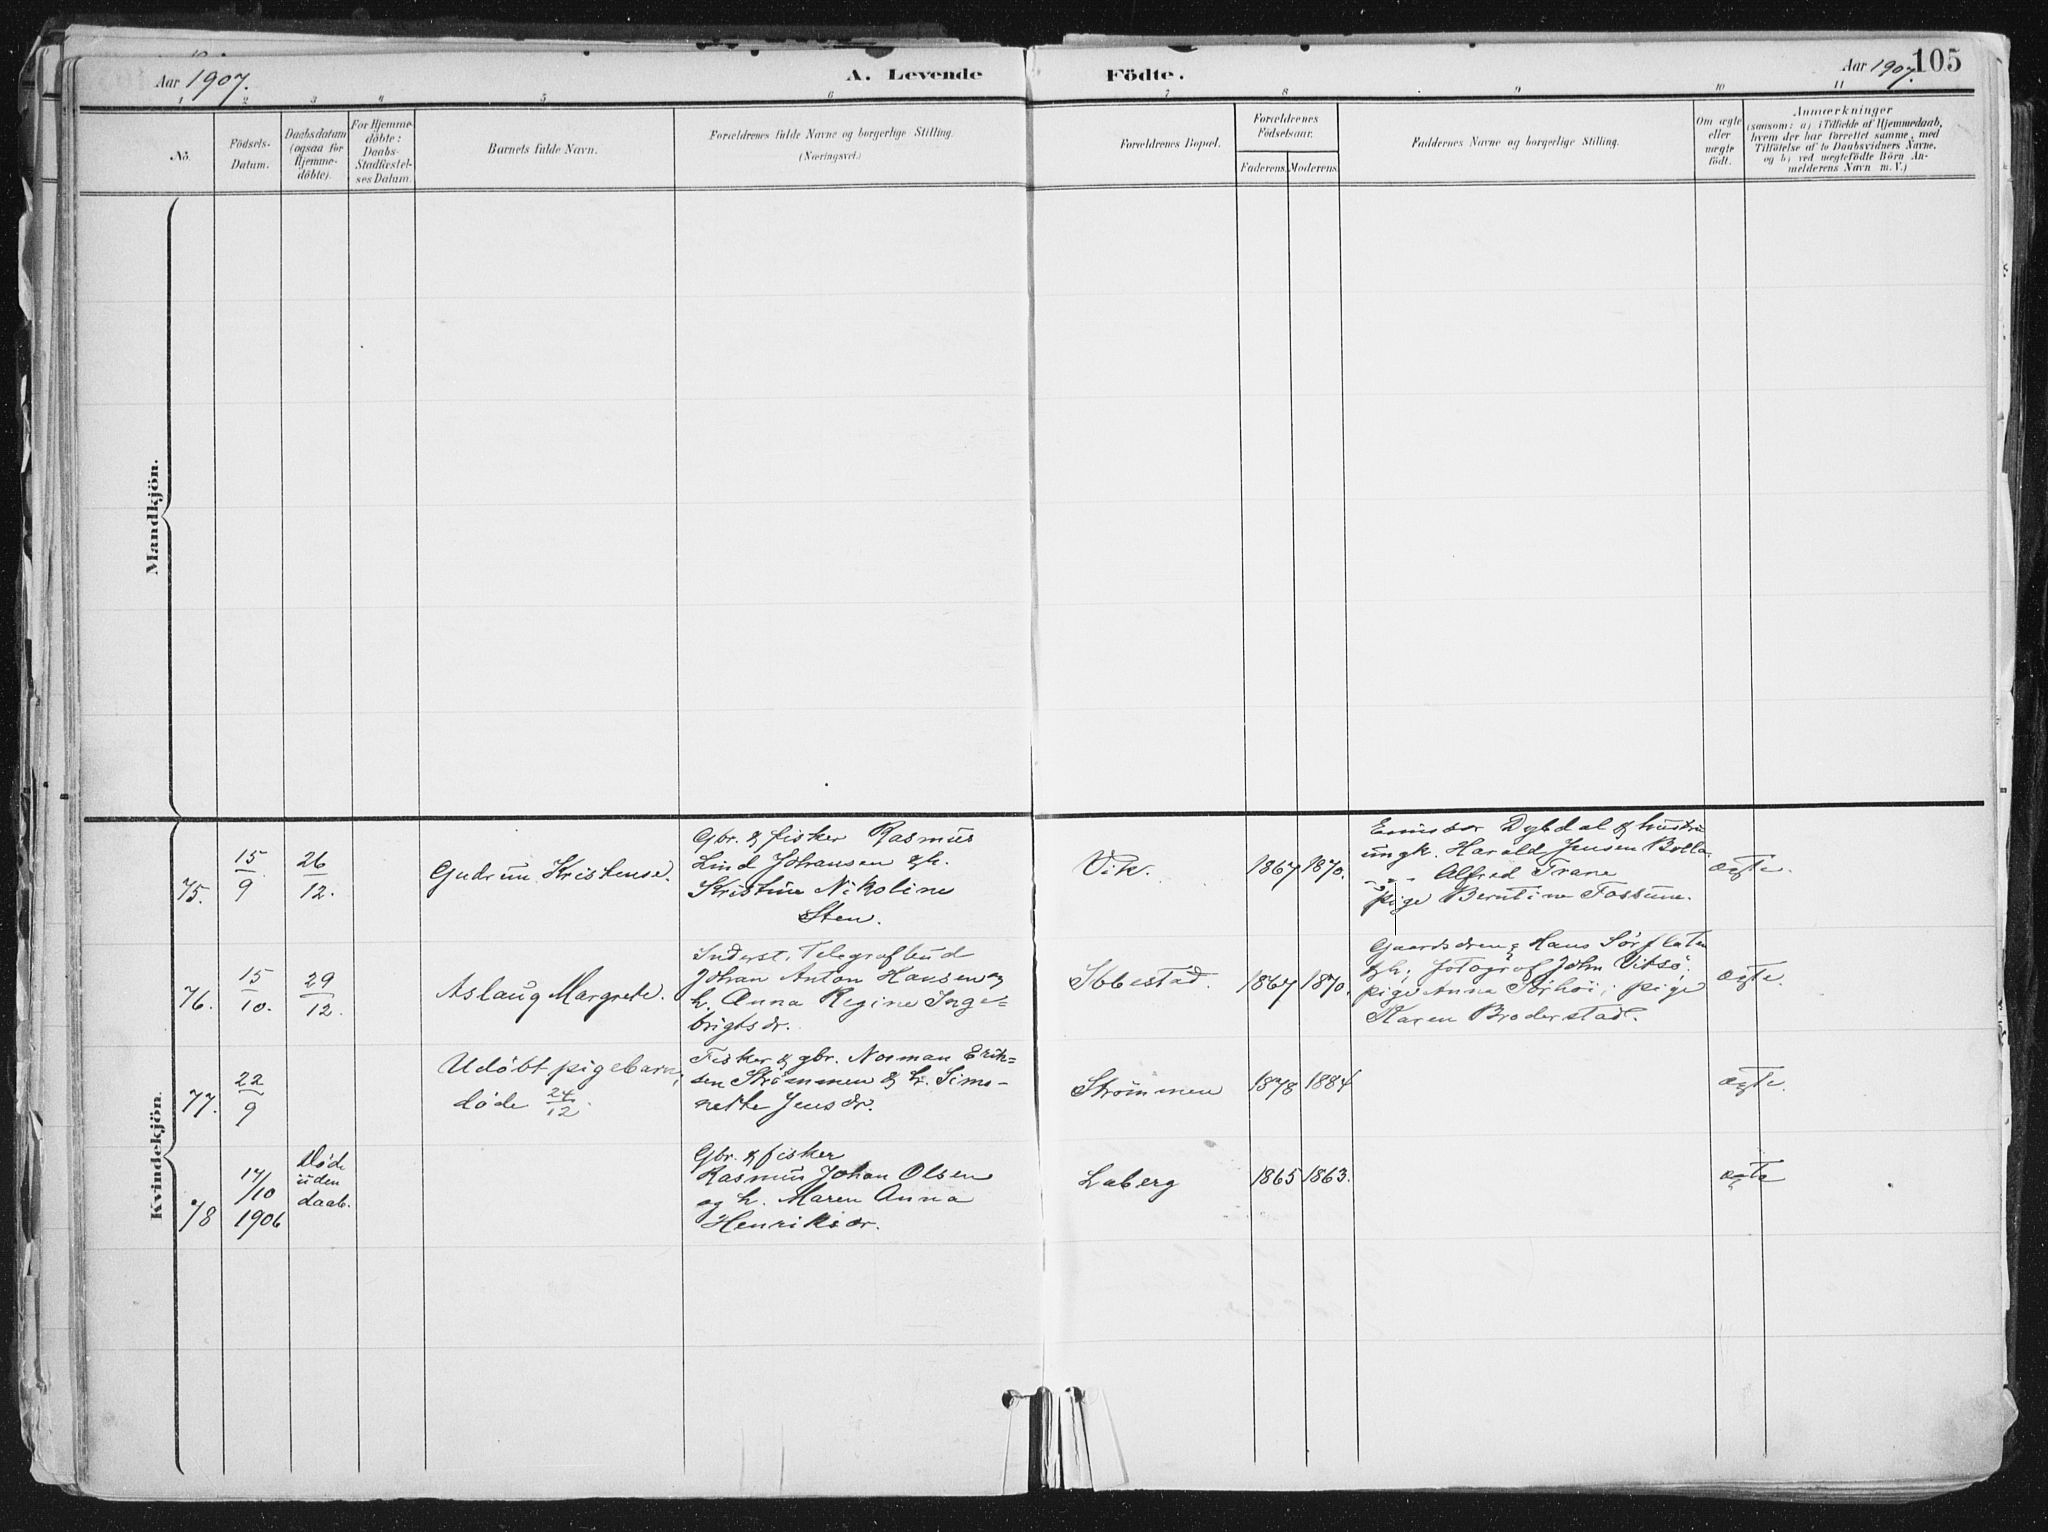 Aar 1907.
A. Levende Födte.
Aar 1907.
105
1 2 3 4 5 6 7 8 9 10 11
No.
Födsels-
Datum.
Daabsdatum
(ogsaa for
Hjemme-
döbte).
For Hjemme-
döbte:
Daabs-
Stadfæstel-
ses Datum.
Barnets fulde Navn.
Forældrenes fulde Navne og borgerlige Stilling.
(Næringsvei.)
Forældrenes Bopæl.
Forældrenes
Födselsaar.
Faderens. Moderens.
Faddernes Navne og borgerlige Stilling.
Om ægte
eller
uægte
födt.
Anmærkninger
(saasom: a) i Tilfælde af Hjemmedaab,
hvem der har forrettet samme, med
Tilföielse af to Daabsvidners Navne,
og b) ved uægtefödte Börn An-
melderens Navn m. V.)
Mandkjön.
Kvindekjön.
75.
15/9
26/12.
Gudrun Kristense.
Gbr. & fisker Rasmus
Lind Johansen &h.
Kristine Nikoline
Sten.
Vik.
1867 1870.
Dybdal & hustru
ungk. Harald Jensen
" " Alfred Trane
pige Berntine Fossum.
ægte.
76.
15/10.
29/12.
Aslaug Margrete.
Inderst, Telegrafbud
Johan Anton Hansen og
h. Anna Regine Inge-
brigtsdr.
Ibbestad.
1867 1870.
Gaardsdreng Hans Sørflaten
&h; fotograf John Vitsø;
pige Anna Sørhøi; pige
Karen Broderstad.
ægte.
77.
22/9
Udøbt pigebarn,
døde 24/12.
Fisker & gbr. Norman Erik=
sen Strømmen & h. Simo-
nette Jensdr.
Strømmen
1878 1884
ægte.
78
17/10
1906
Død
uden
daab.
Gbr. & fisker
Rasmus Johan Olsen
og h. Maren Anna
Henriksdr.
Laberg
1865 1863.
ægte